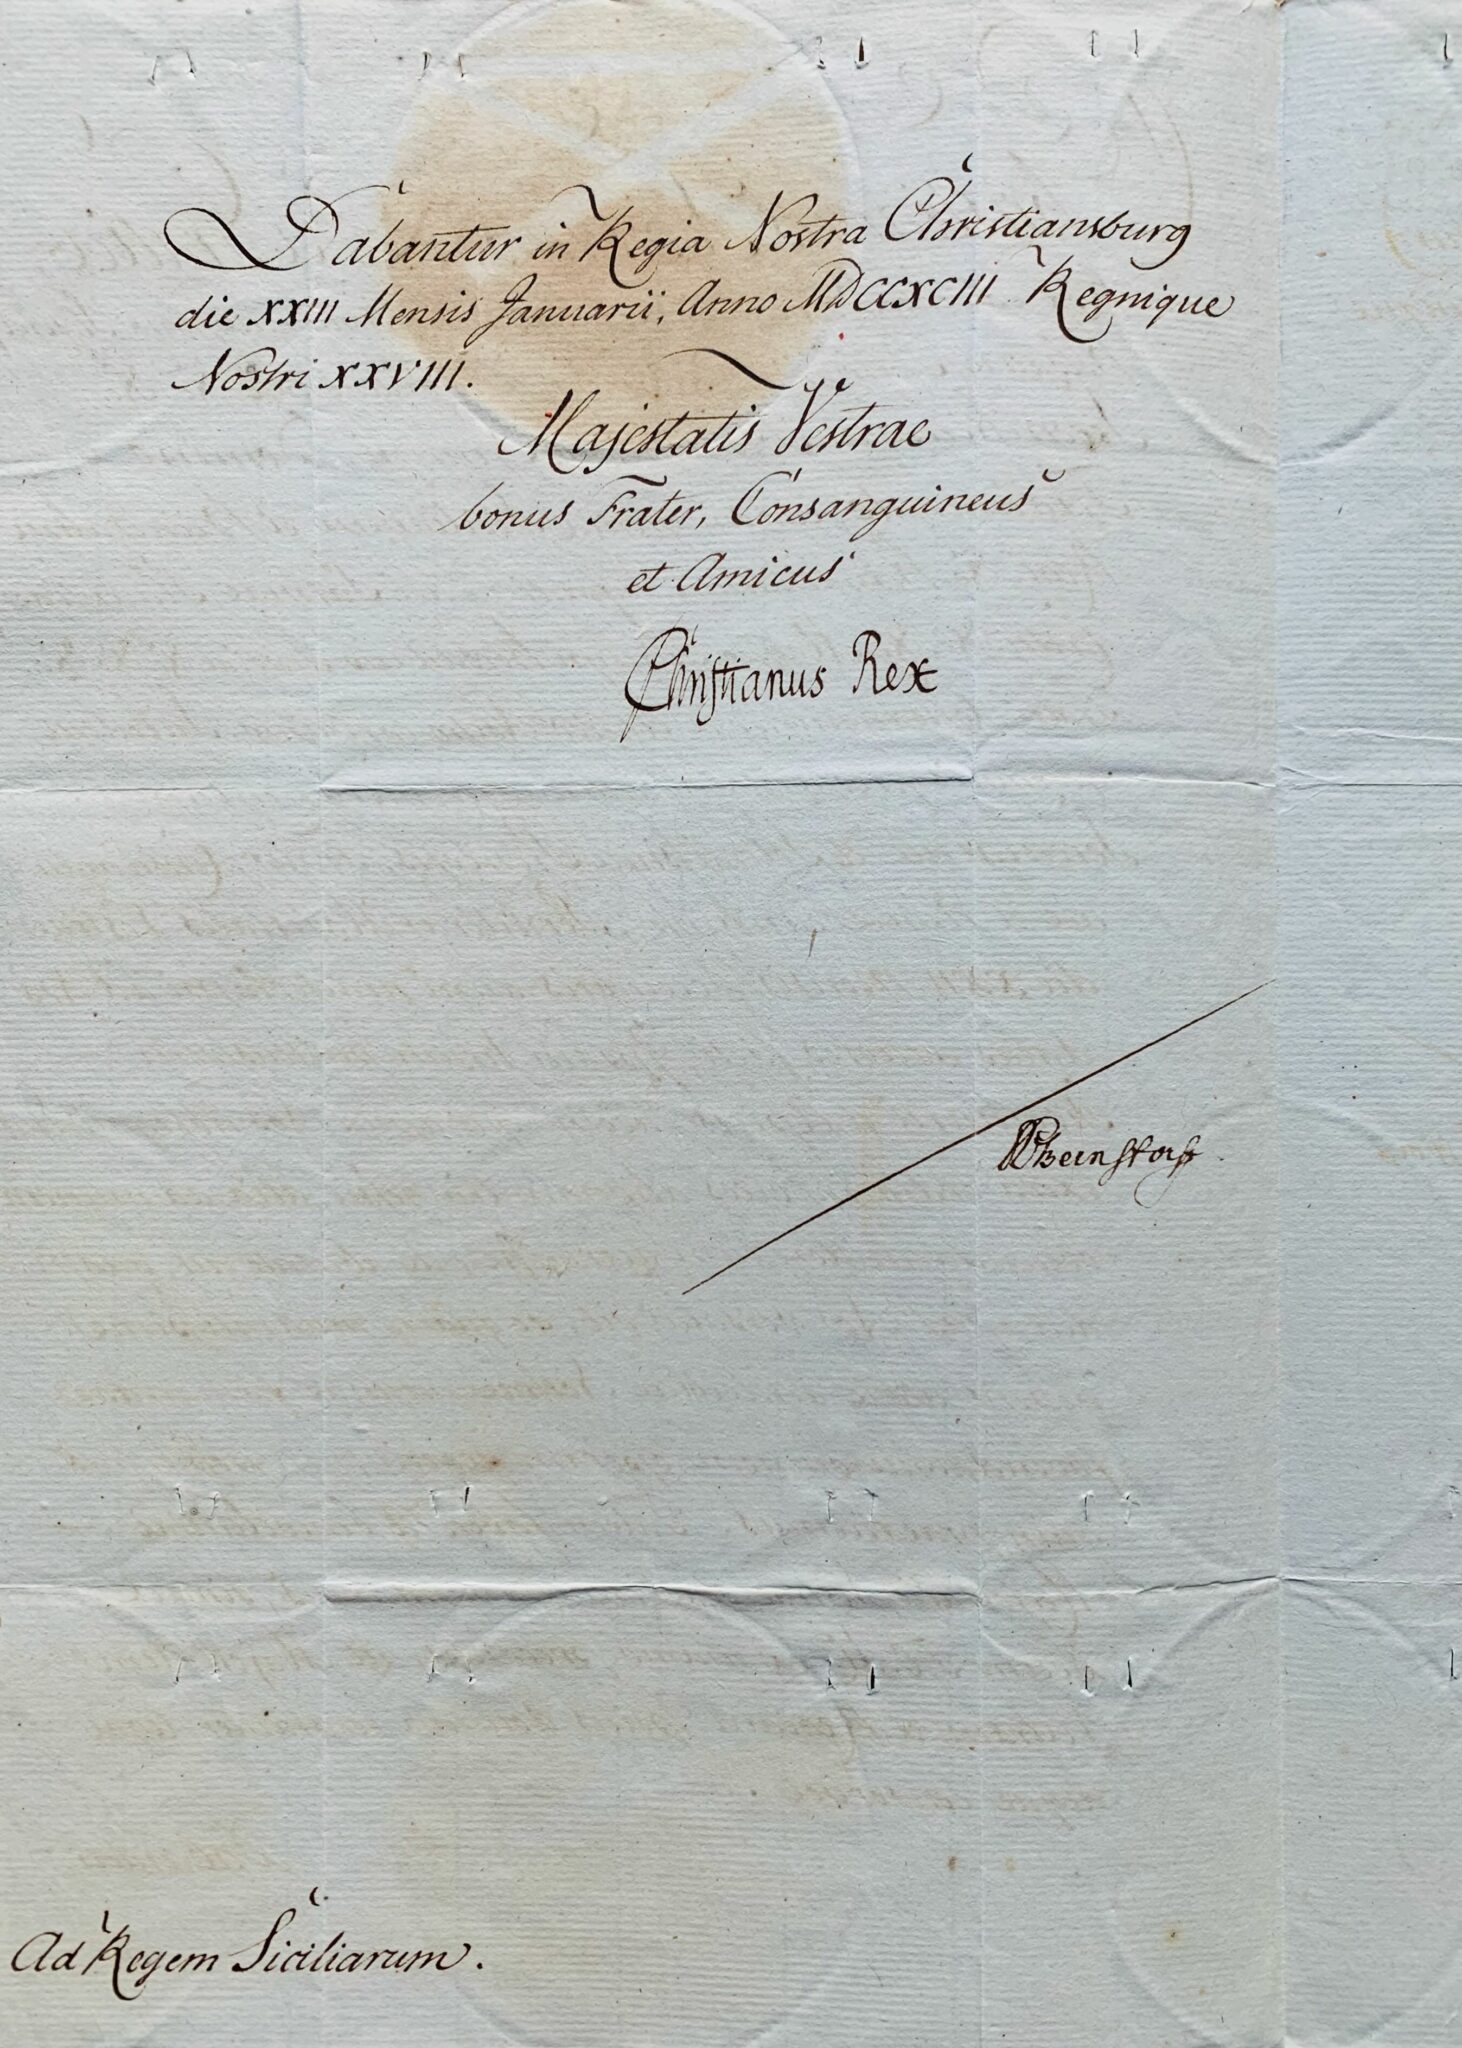 Dabantur in Regia Nostra Christiansburg
die XXIII Mensis Januarii, Anno MDCCXCIII Regnique
Nostri XXVIII.
Majestatis Vestrae
bonus Frater, Consanguineus
et Amicus
Christianus Rex
Ad Regem Siciliarum.